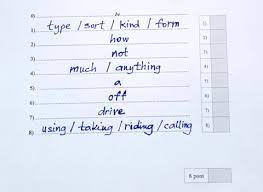 0)
1) type / sort / kind / form 1)
2) how 2)
3) not 3)
4) much / anything 4)
5) a 5)
6) off 6)
7) drive 7)
8) using / taking / riding / calling 8)
8 pont